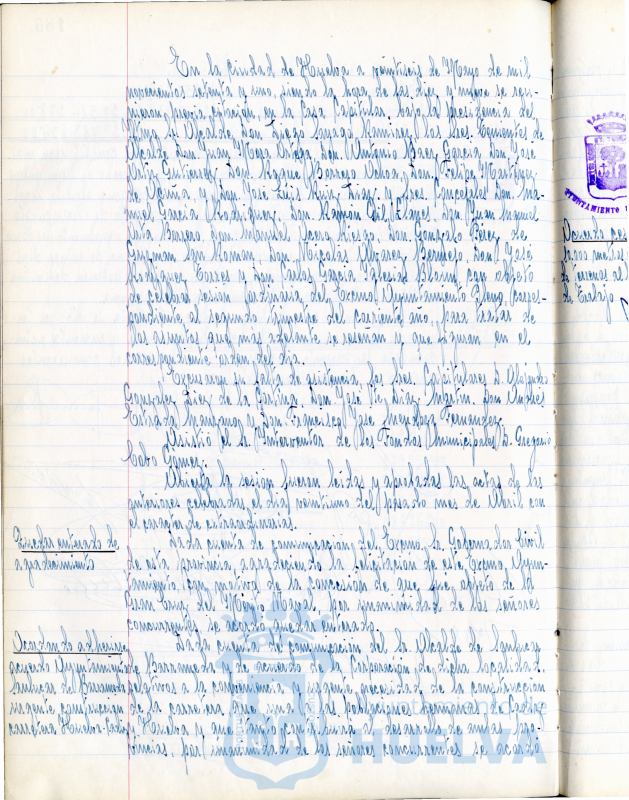 En la ciudad de Huelva a veintiseis de Mayo de mil
novecientos setenta y uno, siendo la hora de las diez y nueve se reu-
nieron, previa citación, en la Casa Capitular, bajo la presidencia del
Iltmo. Sr. Alcalde, Don Diego Ramírez, los Sres. Tenientes de
Alcalde Don Juan Mora Don Antonio Baez Garcia, Don Jose
Ortiz Gutierrez, Don Roque Barrero Don Felipe Martinez
de Acuña, y Don José Luis Ruiz Diaz y Sres. Concejales Don Ma-
nuel Garcia Rodriguez, Don Ramón Gil Don Juan Manuel
Barrero, Don Manuel Riesgo, Don Gonzalo Pérez de
Guzman San Roman, Don Nicolás Alvarez Bermejo, Don José
Rodriguez Torres y Don Carlos Garcia Iglesias con objeto
de celebrar sesion ordinaria, del Excmo. Ayuntamiento Pleno, corres-
pondiente al segundo trimestre del corriente año, para tratar de
los asuntos que mas adelante se reseñan y que figuran en el
correspondiente orden del dia.
Excusaron su falta de asistencia, los Sres. Capitulares D. Alejandro
Gonzalez Diez de la Cortina, Don José Diaz Martin, Don Andrés
Estrada y Don Francisco Jose Mendoza Fernandez.
Asistió el Sr. Interventor de los Fondos Municipales D. Gregorio
Cabo Gomez.
Abierta la sesión fueron leidas y aprobadas las actas de las
anteriores celebradas el dia veintiuno del pasado mes de Abril con
el caracter de extraordinarias.
Quedar enterado de
agradecimiento
Dada cuenta de comunicacion, del Excmo. Sr. Gobernador Civil
de esta provincia, agradeciendo la felicitación de este Excmo. Ayun-
tamiento, con motivo de la concesion de que fue objeto de la
Gran Cruz del Merito Naval, por unanimidad de los señores
concurrentes se acordo quedar enterado.
Acordando adherirse
acuerdo Ayuntamiento
Sanlucar de Barrameda
urgente construccion
carretera Huelva-Cadiz
Dada cuenta de comunicacion del Sr. Alcalde de Sanlucar
de Barrameda, de acuerdo de la Corporación de dicha localidad
relativos a la conveniencia y urgente necesidad de la construcción
de la carretera que una las poblaciones hermanas de Cadiz
y Huelva y que tanto contribuira al desarrollo de ambas pro-
vincias, por unanimidad de los señores concurrentes se acordó
AYUNTAMIENTO
Acuerdo
metros
de terrenos
de Trabajo
HUELVA